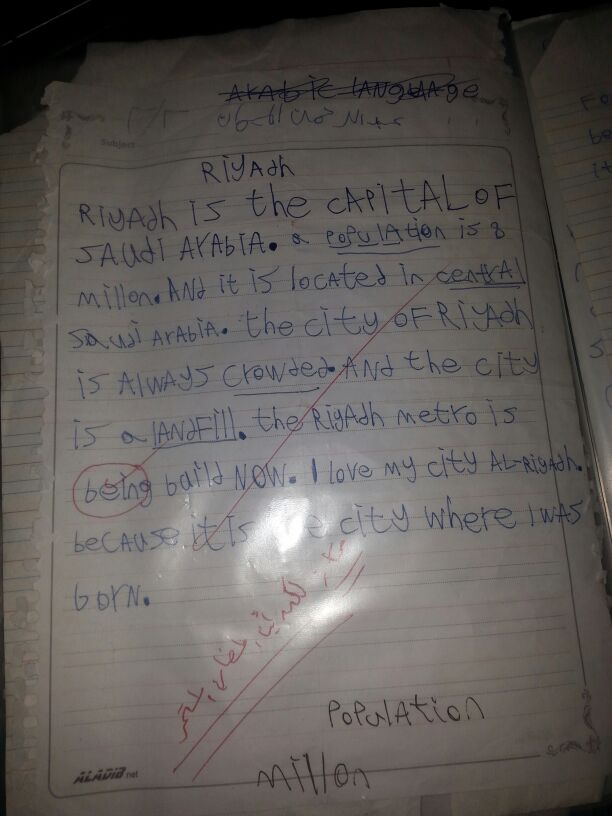 Arabic language
Subject
Riyadh
Riyadh is the capital of
saudi Arabia. a population is 8
millon. And it is located in central
saudi Arabia. the city of Riyadh
is always crowded. And the city
is a landfill. the Riyadh metro is
being baild now. I love my city Al-Riyadh.
because it is the city where I was
born.
Population
millon
ALADIB.net